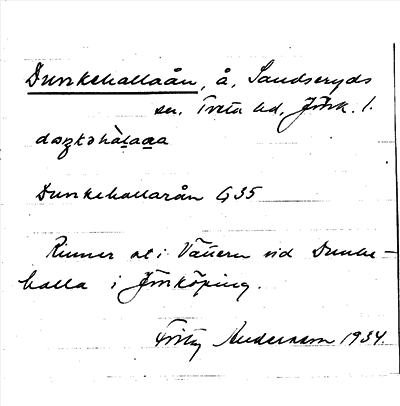 Dunkehallaån, å, Sandseryds
sn. Tveta hd, Jönk. l.
Dunkehallarån G35
Rinner ut i Vättern vid Dunke-
halla i Jönköping.
Fritz Andersson 1934.